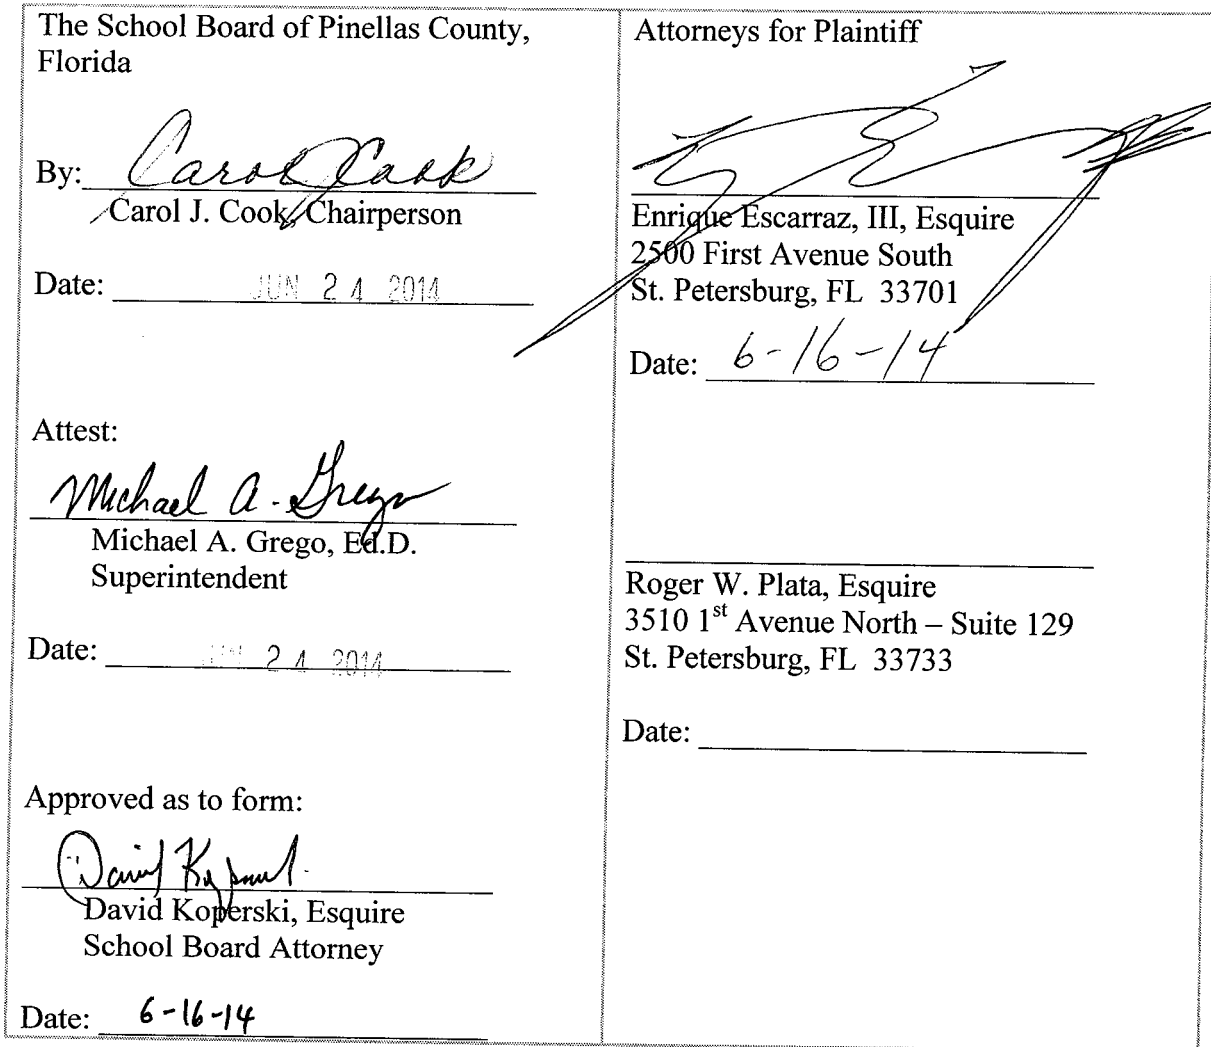 The School Board of Pinellas County,
Florida
By: Carol Cook
Carol J. Cook, Chairperson
Date: JUN 24 2014
Attest:
Michael A. Grego
Michael A. Grego, Ed.D.
Superintendent
Date: JUN 24 2014
Approved as to form:
David Koperski
David Koperski, Esquire
School Board Attorney
Date: 6-16-14
Attorneys for Plaintiff
Enrique Escarraz, III, Esquire
2500 First Avenue South
St. Petersburg, FL 33701
Date: 6-16-14
Roger W. Plata, Esquire
3510 1st Avenue North – Suite 129
St. Petersburg, FL 33733
Date: